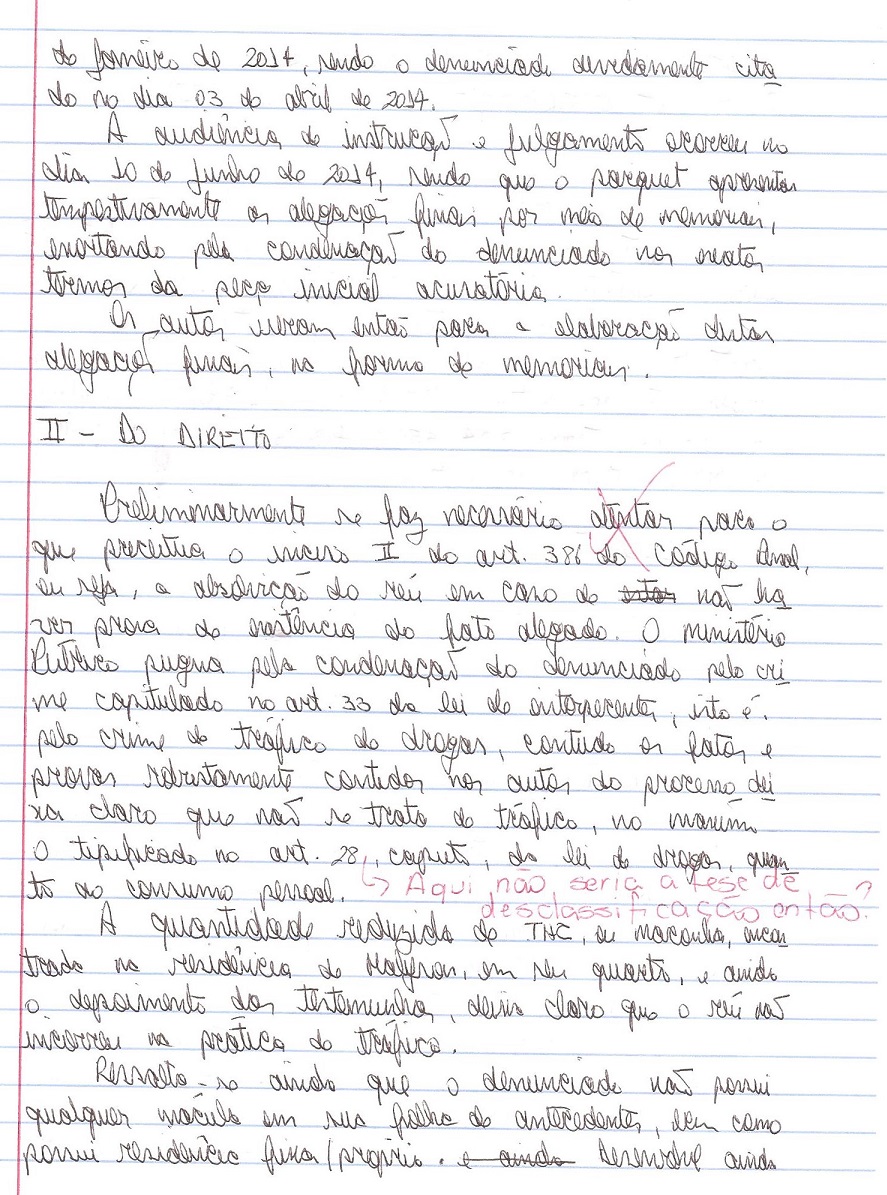 de Janeiro de 2014, sendo o denunciado devidamente cita
do no dia 03 de abril de 2014.
A audiência de instrução e julgamento ocorreu no
dia 10 de Junho de 2014, sendo que o parquet apresentou
tempestivamente as alegações finais por meio de memoriais,
exortando pela condenação do denunciado nos exatos
termos da peça inicial acusatória.
Os autos vieram então para a elaboração destas
alegações finais, na forma de memoriais.
II - DO DIREITO
Preliminarmente se faz necessário atentar para o
que preceitua o inciso II do art. 386 do Código Penal,
ou seja, a absolvição do réu em caso de não ha
ver prova da existência do fato alegado. O Ministério
Público pugna pela condenação do denunciado pelo cri
me capitulado no art. 33 da lei de entorpecentes, isto é,
pelo crime de tráfico de drogas, contudo os fatos e
provas robustamente contidos nos autos do processo dei
xa claro que não se trata de tráfico, no máximo
o tipificado no art. 28, caput, da lei de drogas, quan
to ao consumo pessoal.
↳ Aqui não seria a tese de
desclassificação então?
A quantidade reduzida de THC, ou maconha, encon
trada na residência de , em seu quarto, e ainda
o depoimento das testemunhas, deixa claro que o réu não
incorreu na prática do tráfico.
Ressalta-se ainda que o denunciado não possui
qualquer mácula em sua folha de antecedentes, bem como
possui residência fixa/própria. e ainda Desenvolve ainda